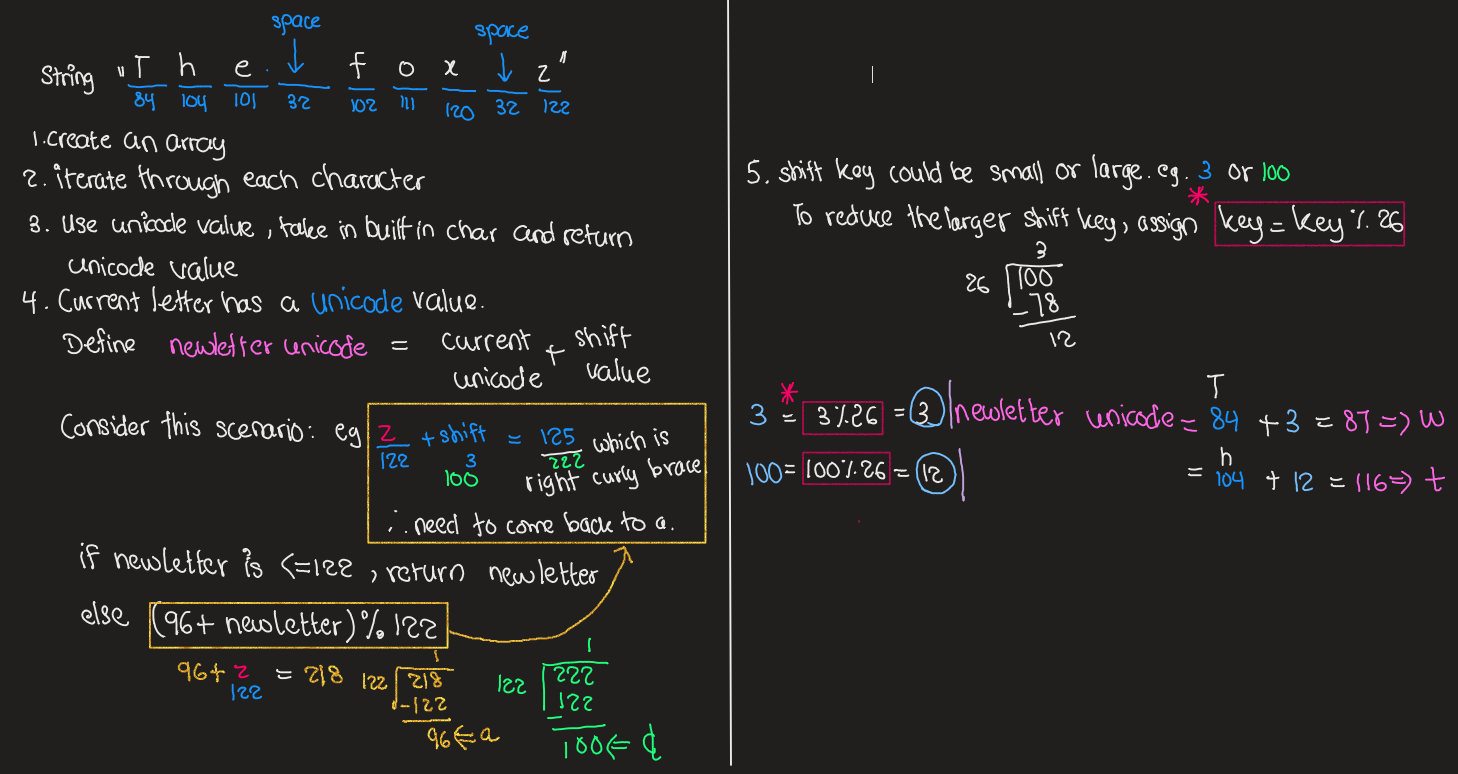 space
space
String "T h e f o x z"
84 104 101 32 102 111 120 32 122
1. Create an array
2. iterate through each character
3. Use unicode value, take in built in char and return
unicode value
4. Current letter has a unicode value.
Define newletter unicode = current unicode + shift value
Consider this scenario: eg
z/122 + shift = 125 which is
3 222
100 right curly brace
∴ need to come back to a.
if newletter is <=122, return newletter
else (96+ newletter) % 122
96+ z = 218
122
1
122 218
-122
96 <= a
1
122 222
-122
100 <= d
5. shift key could be small or large. eg. 3 or 100
To reduce the larger shift key, assign * key = key % 26
3
26 100
-78
12
*
T
3 = 3%26 = 3 | newletter unicode = 84 + 3 = 87 => W
h
100 = 100%26 = 12 | = 104 + 12 = 116 => t